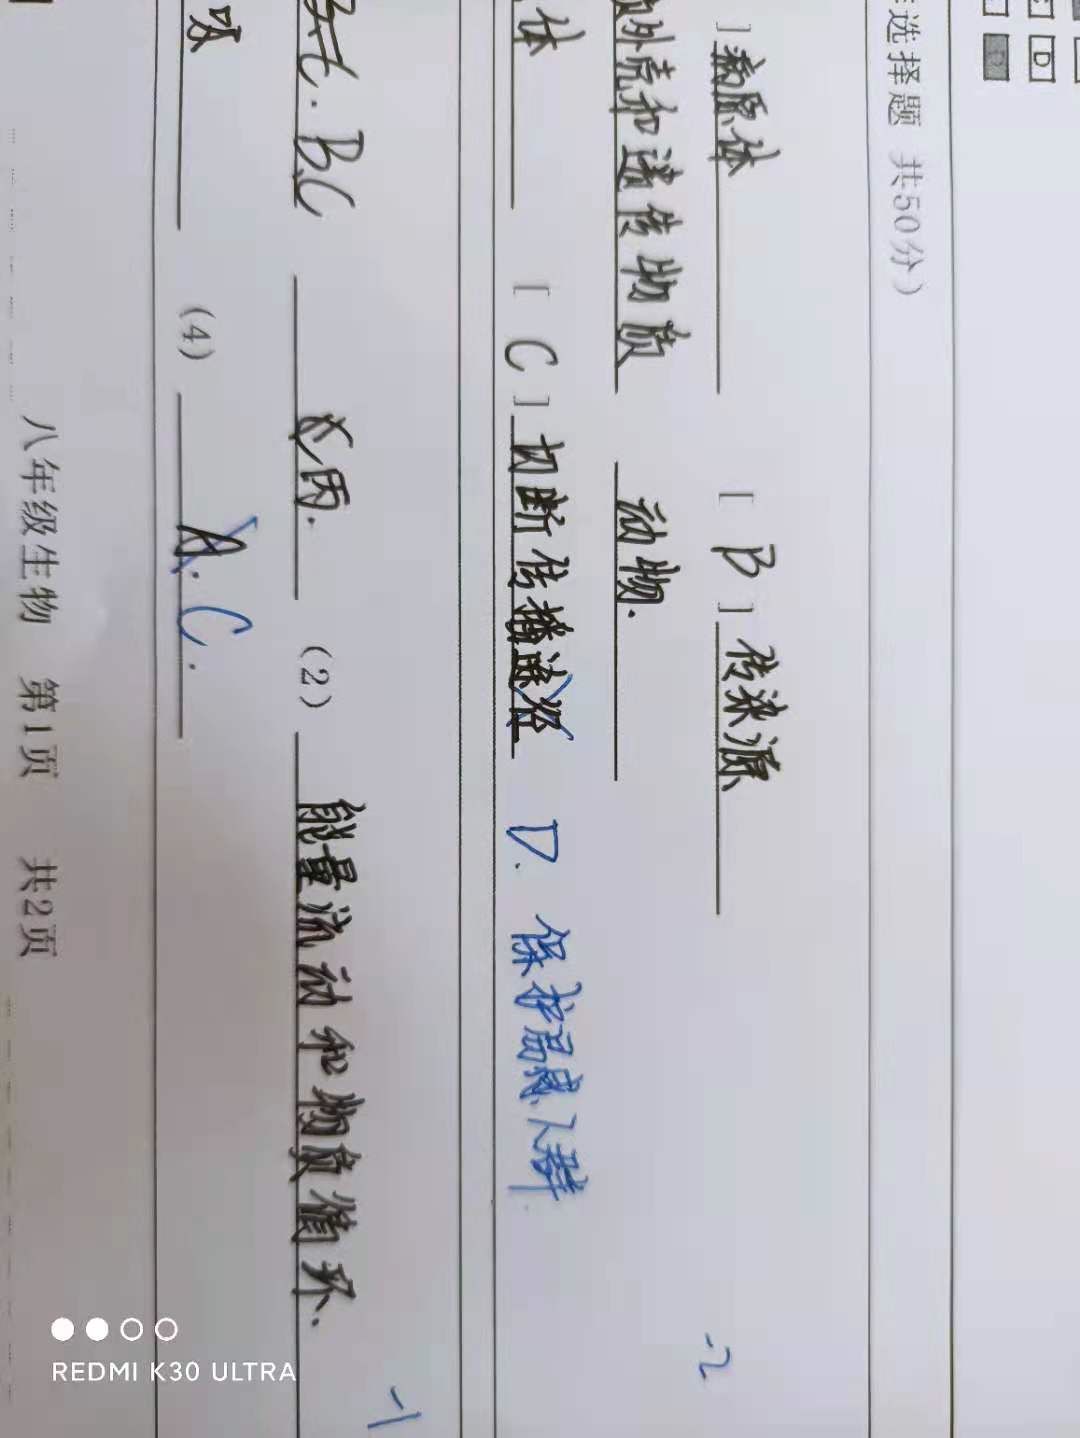 D
选择题 共50分）
］病原体 ［ B ］传染源
外壳和遗传物质 动物.
体 ［ C ］切断传播途径 D. 保护易感人群
-2
BC 义因. （2） 能量流动和物质循环.
（4） A. C.
-1
八年级生物 第1页 共2页
REDMI K30 ULTRA